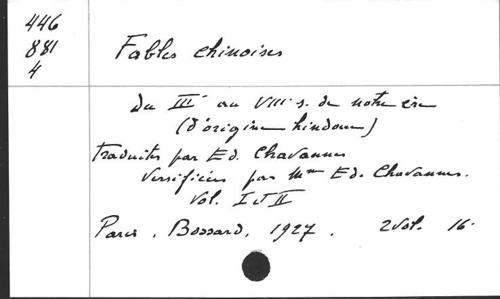 446
881
4
Fables chinoises
Du III au VIII s. de notre ère
(d'origine hindoue)
Traduites par Ed. Chavannes
versifiées par Mme Ed. Chavannes.
Vol. I et II
Paris, Bossard, 1927. 2 vol. 16.